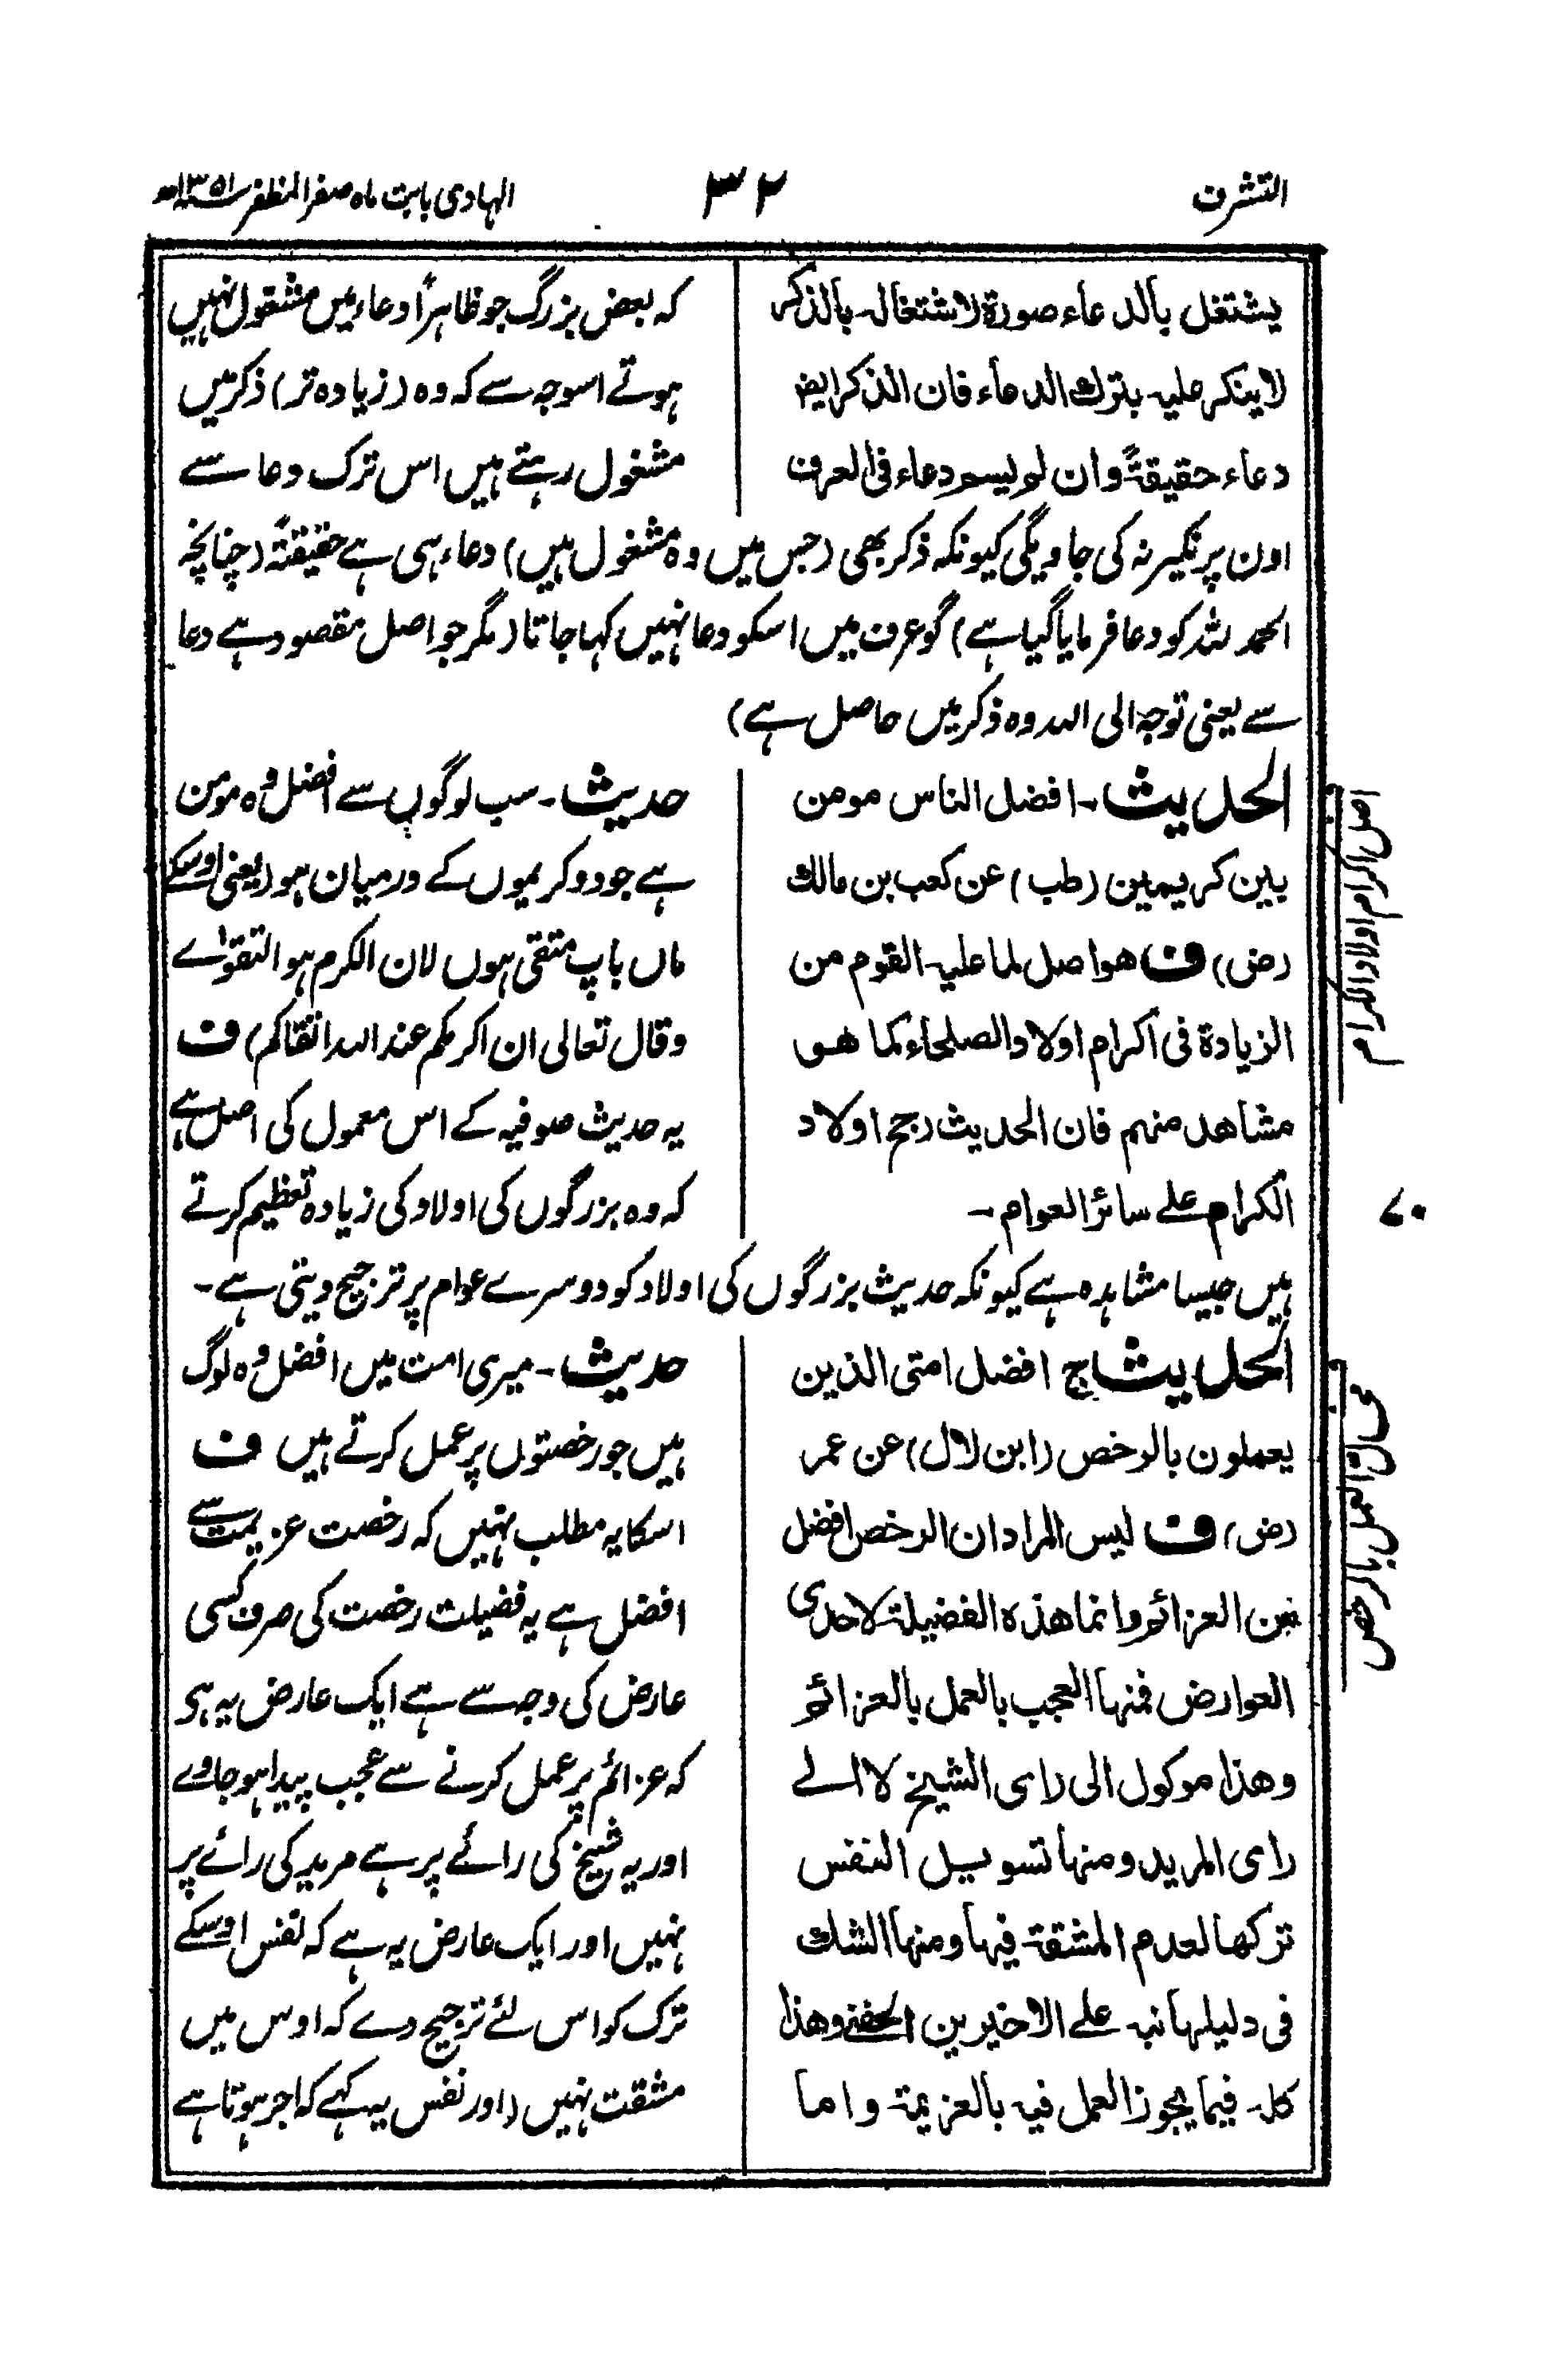 التشرف
٣٢
الہادی بابت ماہ صفر المظفر سنہ ١٣٥١ھ
یشتغل بالدعاء صورۃ لاشتغالہ بالذکر
لاینکر علیہ بترک الدعاء فان الذکر ایضا
دعاء حقیقۃً وان لم یسم دعاء فی العرف
کہ بعض بزرگ جو ظاہراً دعاء میں مشغول نہیں
ہوتے اسوجہ سے کہ وہ (زیادہ تر) ذکر میں
مشغول رہتے ہیں اس ترک دعا سے
اون پر نکیر نہ کی جاویگی کیونکہ ذکر بھی (جس میں وہ مشغول ہیں) دعاء ہی ہے حقیقۃً (چنانچہ
الحمد للہ کو دعا فرمایا گیا ہے) گو عرف میں اسکو دعا نہیں کہا جاتا (مگر جو اصل مقصود ہے دعا
سے یعنی توجہ الی اللہ وہ ذکر میں حاصل ہے)
الحدیث۔ افضل الناس مومن
بین کریمین (طب) عن کعب بن مالک
(رض) ف ھو اصل لما علیہ القوم من
الزیادۃ فی اکرام اولاد الصلحاء کما ھو
مشاھد منہم فان الحدیث رجح اولاد
الکرام علے سائر العوام۔
حدیث۔ سب لوگوں سے افضل وہ مومن
ہے جو دو کریموں کے درمیان ہو (یعنی اوسکے
ماں باپ متقی ہوں لان الکرم ہو التقوٰے
وقال تعالی ان اکرمکم عند اللہ اتقاکم) ف
یہ حدیث صوفیہ کے اس معمول کی اصل ہے
کہ وہ بزرگوں کی اولاد کی زیادہ تعظیم کرتے
٧٠
ہیں جیسا مشاہدہ ہے کیونکہ حدیث بزرگوں کی اولاد کو دوسرے عوام پر ترجیح دیتی ہے۔
الحدیث افضل امتی الذین
یعملون بالرخص (ابن لال) عن عمر
(رض) ف لیس المراد ان الرخص افضل
من العزائم وانما ھذہ الفضیلۃ لاحدی
العوارض فمنہا العجب بالعمل بالعزائم
وھذا موکول الی رای الشیخ لا الے
رای المرید ومنہا تسویل النفس
ترکھا لعدم المشقۃ فیہا ومنہا الشک
فی دلیلہا نبہ علے الاخیرین الحفنے وھذا
کلہ فیما یجوز العمل فیہ بالعزیمۃ واما
حدیث۔ میری امت میں افضل وہ لوگ
ہیں جو رخصتوں پر عمل کرتے ہیں ف
اسکا یہ مطلب نہیں کہ رخصت عزیمت سے
افضل ہے یہ فضیلت رخصت کی صرف کسی
عارض کی وجہ سے ہے ایک عارض یہ ہی
کہ عزائم پر عمل کرنے سے عجب پیدا ہو جاوے
اور یہ شیخ کی رائے پر ہے مرید کی رائے پر
نہیں اور ایک عارض یہ ہے کہ نفس اوسکے
ترک کو اس لئے ترجیح دے کہ اوس میں
مشقت نہیں (اور نفس یہ کہے کہ اجر ہوتا ہے